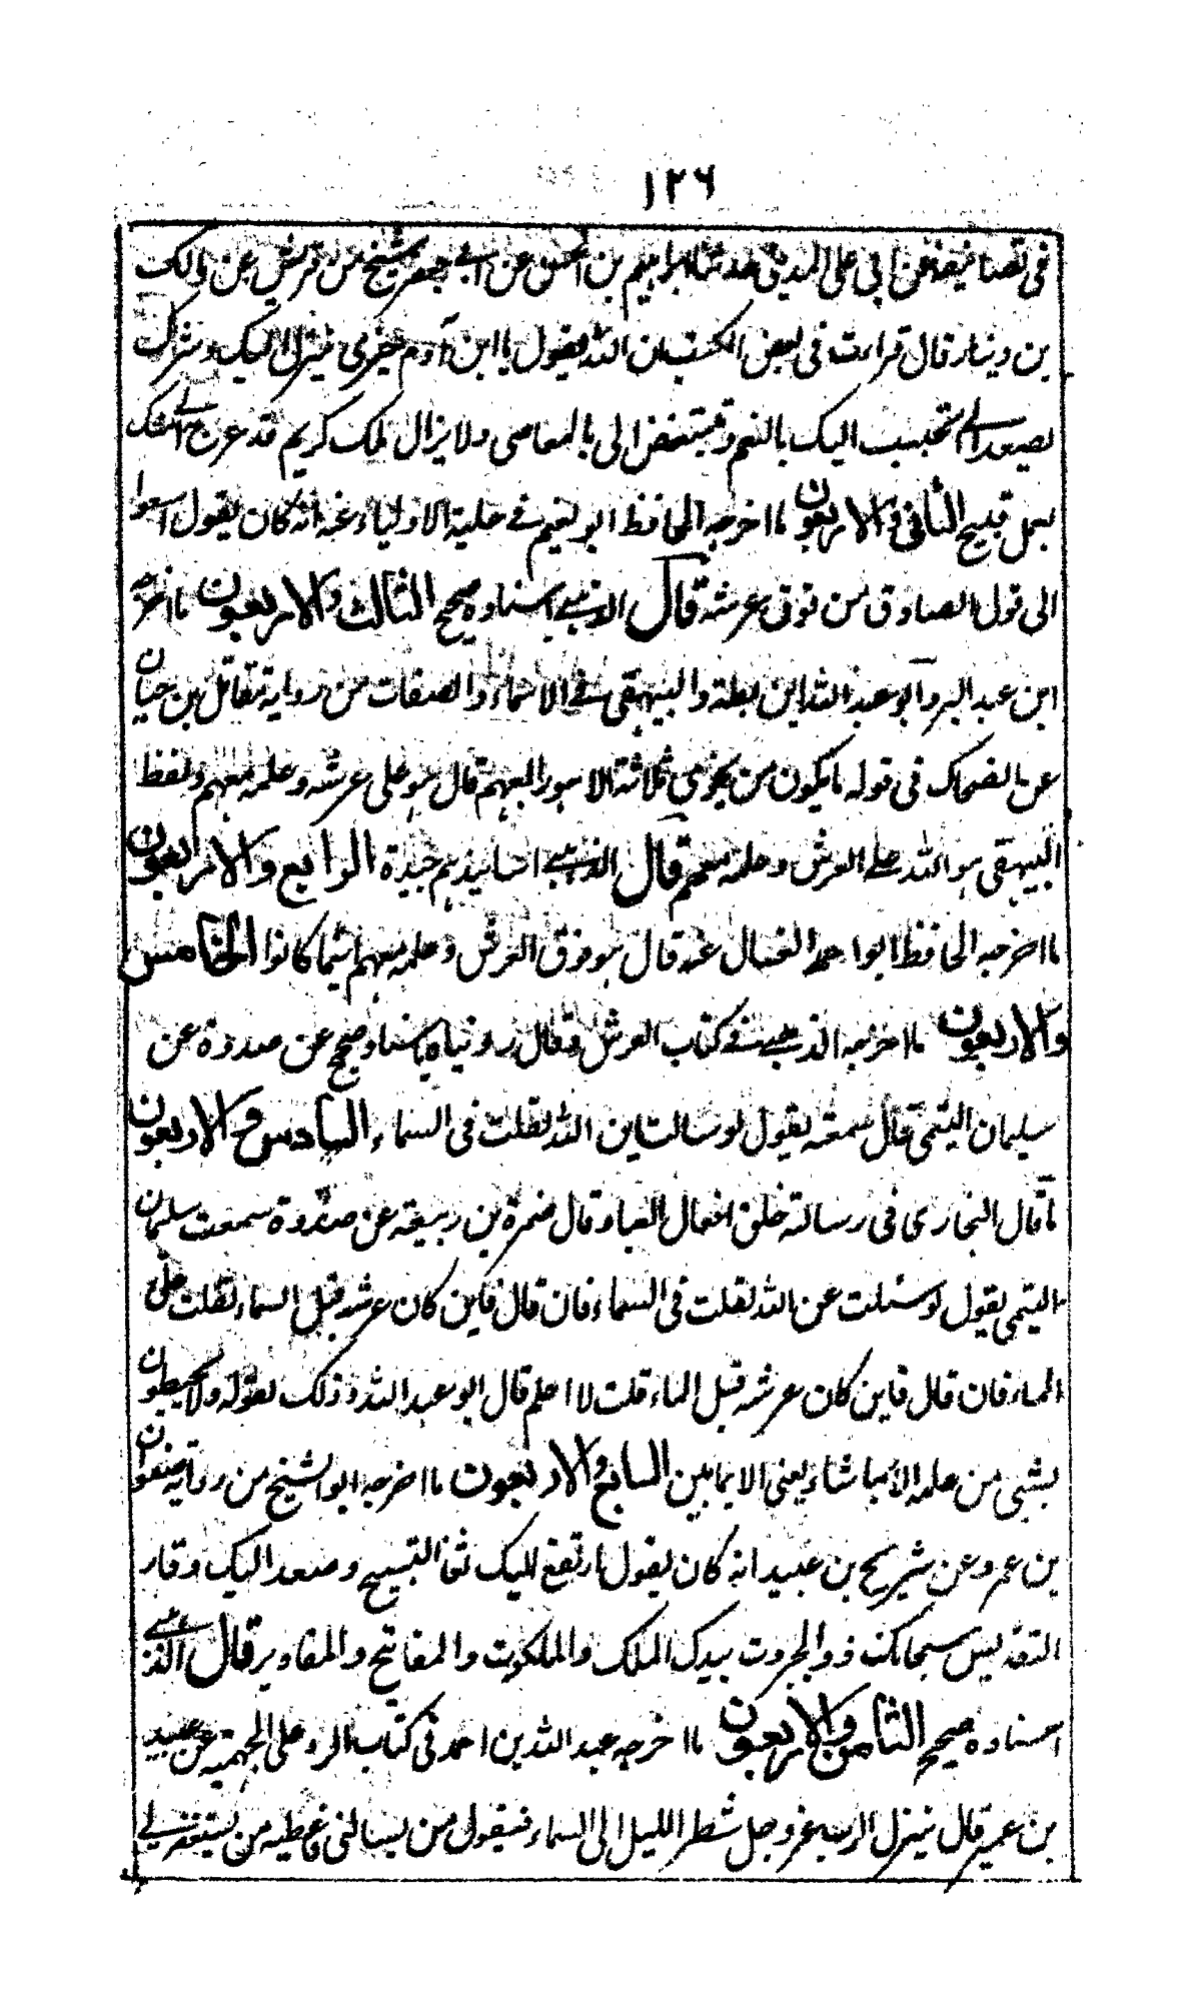 ١٢٦
فی تصانیفه عن ابی علی المدینی حدثنا ابراهیم بن اسحق عن ابی جعفر شیخ من قریش عن مالک
بن دینار قال قراءت فی بعض الکتب ان الله یقول یا ابن آدم خیری ینزل الیک وشرک
یصعد الی اتحبب الیک بالنعم وتتبغض الی بالمعاصی ولا یزال ملک کریم قد عرج الی منک
بعمل قبیح الثانی والاربعون ما اخرجه الحافظ ابو نعیم فی حلیة الاولیاء عنه انه کان یقول اسمعوا
الی قول الصادق من فوق عرشه قال الذهبی اسناده صحیح الثالث والاربعون ما اخرجه
ابن عبد البر وابو عبد الله ابن بطة والبیهقی فی الاسماء والصفات من روایة مقاتل بن حیان
عن الضحاک فی قوله ما یکون من نجوی ثلاثة الا هو رابعهم قال هو علی عرشه وعلمه معهم ولفظ
البیهقی هو الله علی العرش وعلمه معهم قال الذهبی اسانیدهم جیدة الرابع والاربعون
ما اخرجه الحافظ ابو احمد العسال عنه قال هو فوق العرش وعلمه معهم اینما کانوا الخامس
والاربعون ما اخرجه الذهبی فی کتاب العرش وقال رویناه باسناد صحیح عن صدقة عن
سلیمان التیمی قال سمعته یقول لو سالت این الله لقلت فی السماء السادس والاربعون
ما قال البخاری فی رسالة خلق افعال العباد قال ضمرة بن ربیعة عن صدقة سمعت سلیمان
التیمی یقول لو سئلت عن الله لقلت فی السماء فان قال فاین کان عرشه قبل السماء لقلت علی
الماء فان قال فاین کان عرشه قبل الماء قلت لا اعلم قال ابو عبد الله وذلک لقوله ولا یحیطون
بشیء من علمه الا بما شاء یعنی الا بما بین السابع والاربعون ما اخرجه ابو الشیخ من روایة صفوان
بن عمرو عن شریح بن عبید انه کان یقول ارتفع الیک ثغاء التسبیح وصعد الیک وقار
التقدیس سبحانک ذو الجبروت بیدک الملک والملکوت والمفاتیح والمقادیر قال الذهبی
اسناده صحیح الثامن والاربعون ما اخرجه عبد الله بن احمد فی کتاب الرد علی الجهمیة عن عبید
بن عمیر قال ینزل الرب عز وجل شطر اللیل الی السماء فیقول من یسالنی فاعطیه من یستغفرنی